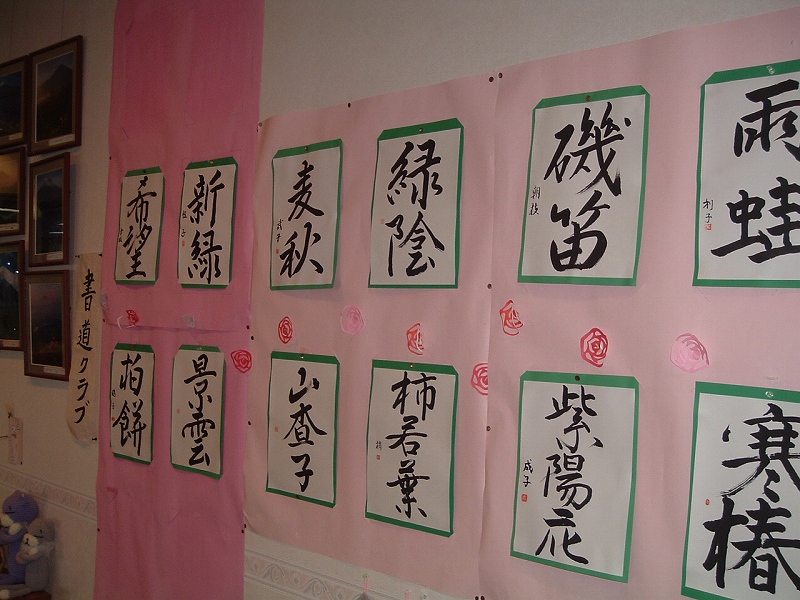 書道クラブ
希望
新緑
麦秋
式子
緑陰
磯笛
朝枝
雨蛙
利子
柏餅
景雲
山査子
柿若葉
紫陽花
成子
寒椿